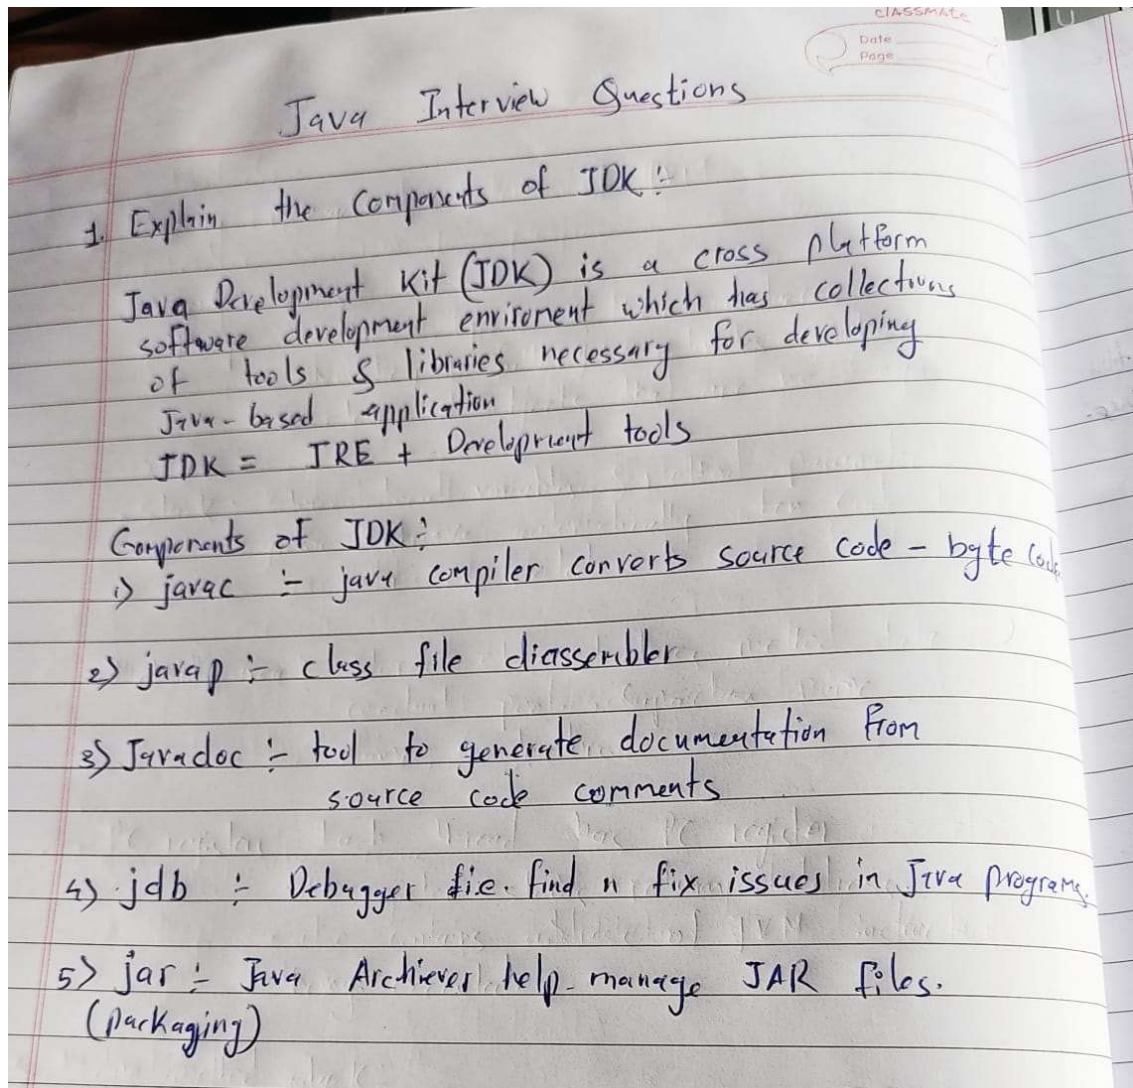 classmate
Date
Page
Java Interview Questions
1. Explain the Components of JDK :-
Java Development Kit (JDK) is a cross platform
software development enviroment which has collections
of tools & libraries necessary for developing
Java-based application
JDK = JRE + Development tools
Components of JDK :-
1) javac :- java compiler converts source code - byte code
2) javap :- class file diassembler
3) Javadoc :- tool to generate documentation from
source code comments
4) jdb :- Debugger i.e. find n fix issues in Java programs.
5) jar :- Java Archiever help manage JAR files.
(packaging)